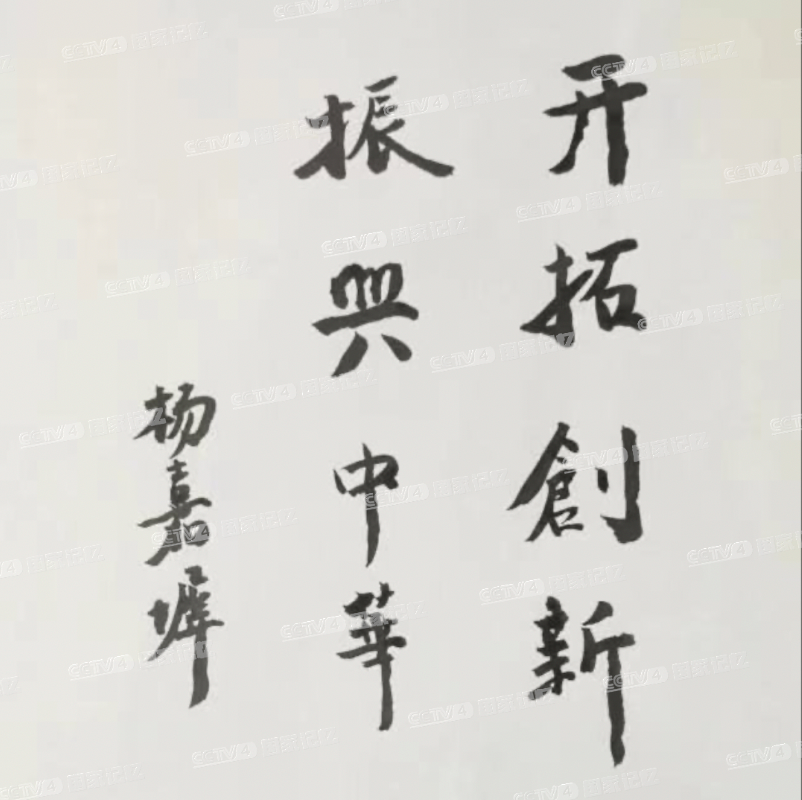 开拓創新
振興中華
杨嘉墀
CCTV4 国家记忆